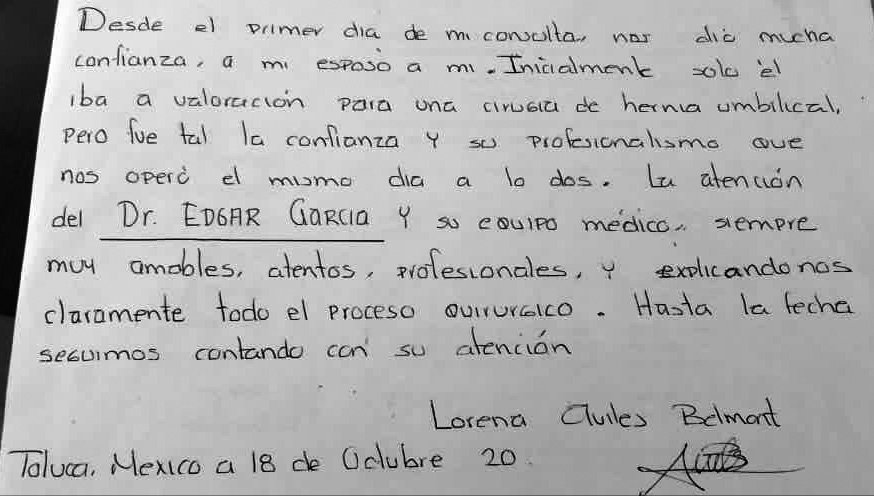 Desde el primer dia de mi consulta, nos dió mucha
confianza, a mi esposo a mi. Inicialmente solo él
iba a valoración para una cirugia de hernia umbilical,
pero fue tal la confianza y su profesionalismo que
nos operó el mismo dia a lo dos. La atención
del Dr. EDGAR GARCIA y su equipo médico, siempre
muy amables, atentos, profesionales, y explicando nos
claramente todo el proceso quirurgico. Hasta la fecha
seguimos contando con su atención
Lorena Aviles Belmont
Toluca. Mexico a 18 de Octubre 20.